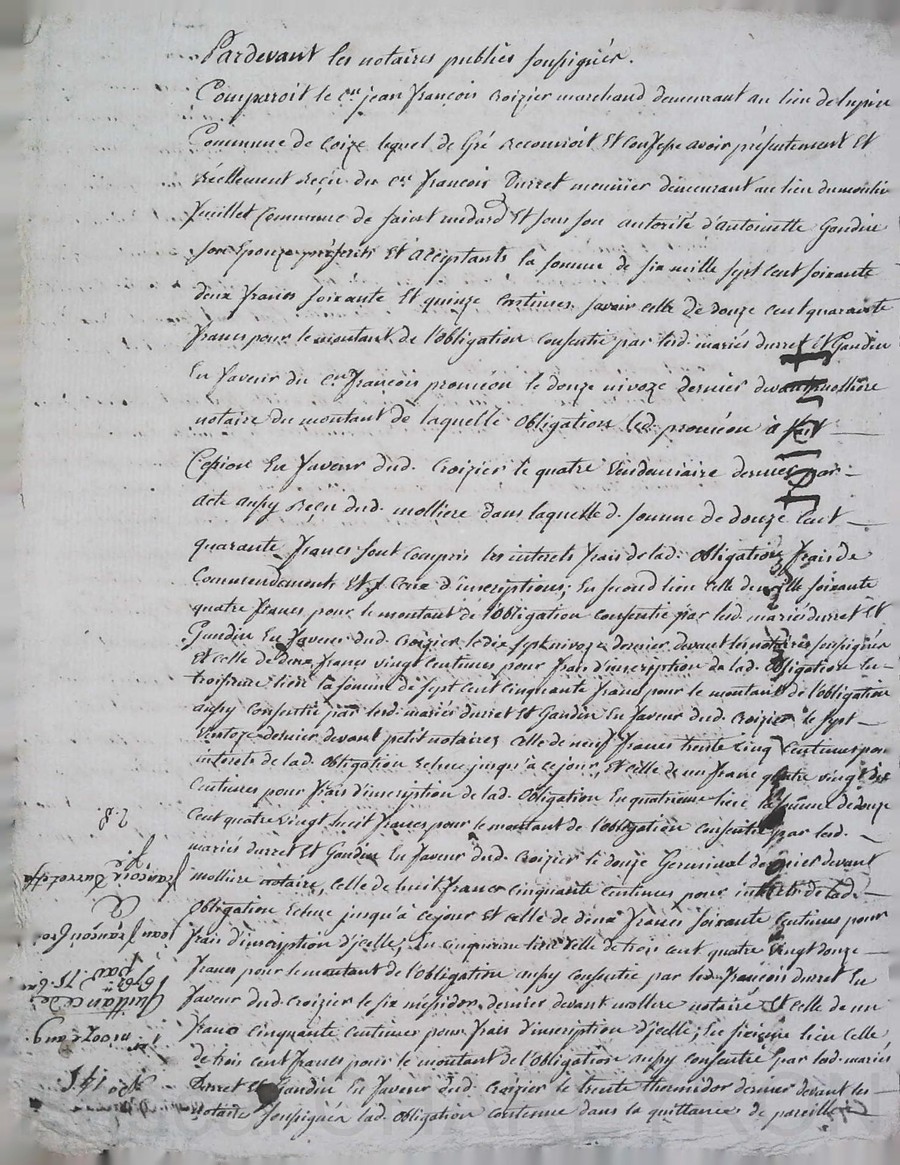 Pardevant les notaires publics soussignés.
Comparoit le Cen jean françois croizier marchand demeurant au lieu de
Commune de Coize lequel de Gré reconnoit Et confesse avoir présentement Et
réellement reçu du Cen françois Durret meunier demeurant au lieu du moulin
feuillet Commune de saint medard Et sous son autorité d'antoinette Gandin
son Epouze présents Et acceptants la somme de six mille sept cent soixante
deux francs soixante Et quinze centimes, savoir celle de douze cent quarante
francs pour le montant de l'obligation consentie par lesd. mariés durret Et Gandin
En faveur du Cen françois proméon le douze nivoze dernier devant mollière
notaire du montant de laquelle obligation led. proméon à fait
Cession En faveur dud. Croizier le quatre vendemiaire dernier par
acte aussy reçu dud. molliere dans laquelle d. somme de douze Cent
quarante francs sont compris les interets frais de lad. obligation, frais de
Commendement Et Ceux d'inscriptions; En second lieu Celle de mille soixante
quatre francs pour le montant de l'obligation consentie par lesd. mariés durret Et
Gandin En faveur dud. Croizier le dix sept nivoze dernier devant les notaires soussignés
Et celle de deux francs vingt centimes pour frais d'inscription de lad. obligation En
troisieme lieu la somme de sept cent cinquante francs pour le montant de l'obligation
aussy consentie par lesd. mariés durret Et Gandin En faveur dud. Croizier le sept
ventoze dernier devant petit notaires, celle de neuf francs trente cinq centimes pour
interets de lad. obligation Echue jusqu'à ce jour, Et celle de un franc quatre vingt dix
Centimes pour frais d'inscription de lad. obligation En quatrieme lieu la somme de douze
Cent quatre vingt huit francs pour le montant de l'obligation consentie par lesd.
mariés durret Et Gandin En faveur dud. Croizier le douze Germinal dernier devant
molliere notaire, celle de huit francs cinquante centimes pour interets de lad.
obligation Echue jusqu'à ce jour Et celle de deux francs soixante centimes pour
frais d'inscription d'icelle; En cinquieme lieu celle de trois cent quatre vingt douze
francs pour le montant de l'obligation aussy consentie par led. françois durret En
faveur dud. croizier le six messidor dernier devant mollere notaire Et celle de un
franc cinquante centimes pour frais d'inscription d'icelle; En sixieme lieu Celle
de trois cent francs pour le montant de l'obligation aussy consentie par lesd. mariés
Durret Et Gandin En faveur dud. Croizier le trente thermidor dernier devant les
notaire soussignés lad. obligation contenue dans la quittance de pareille
Quittance de
jean françois
françois durret